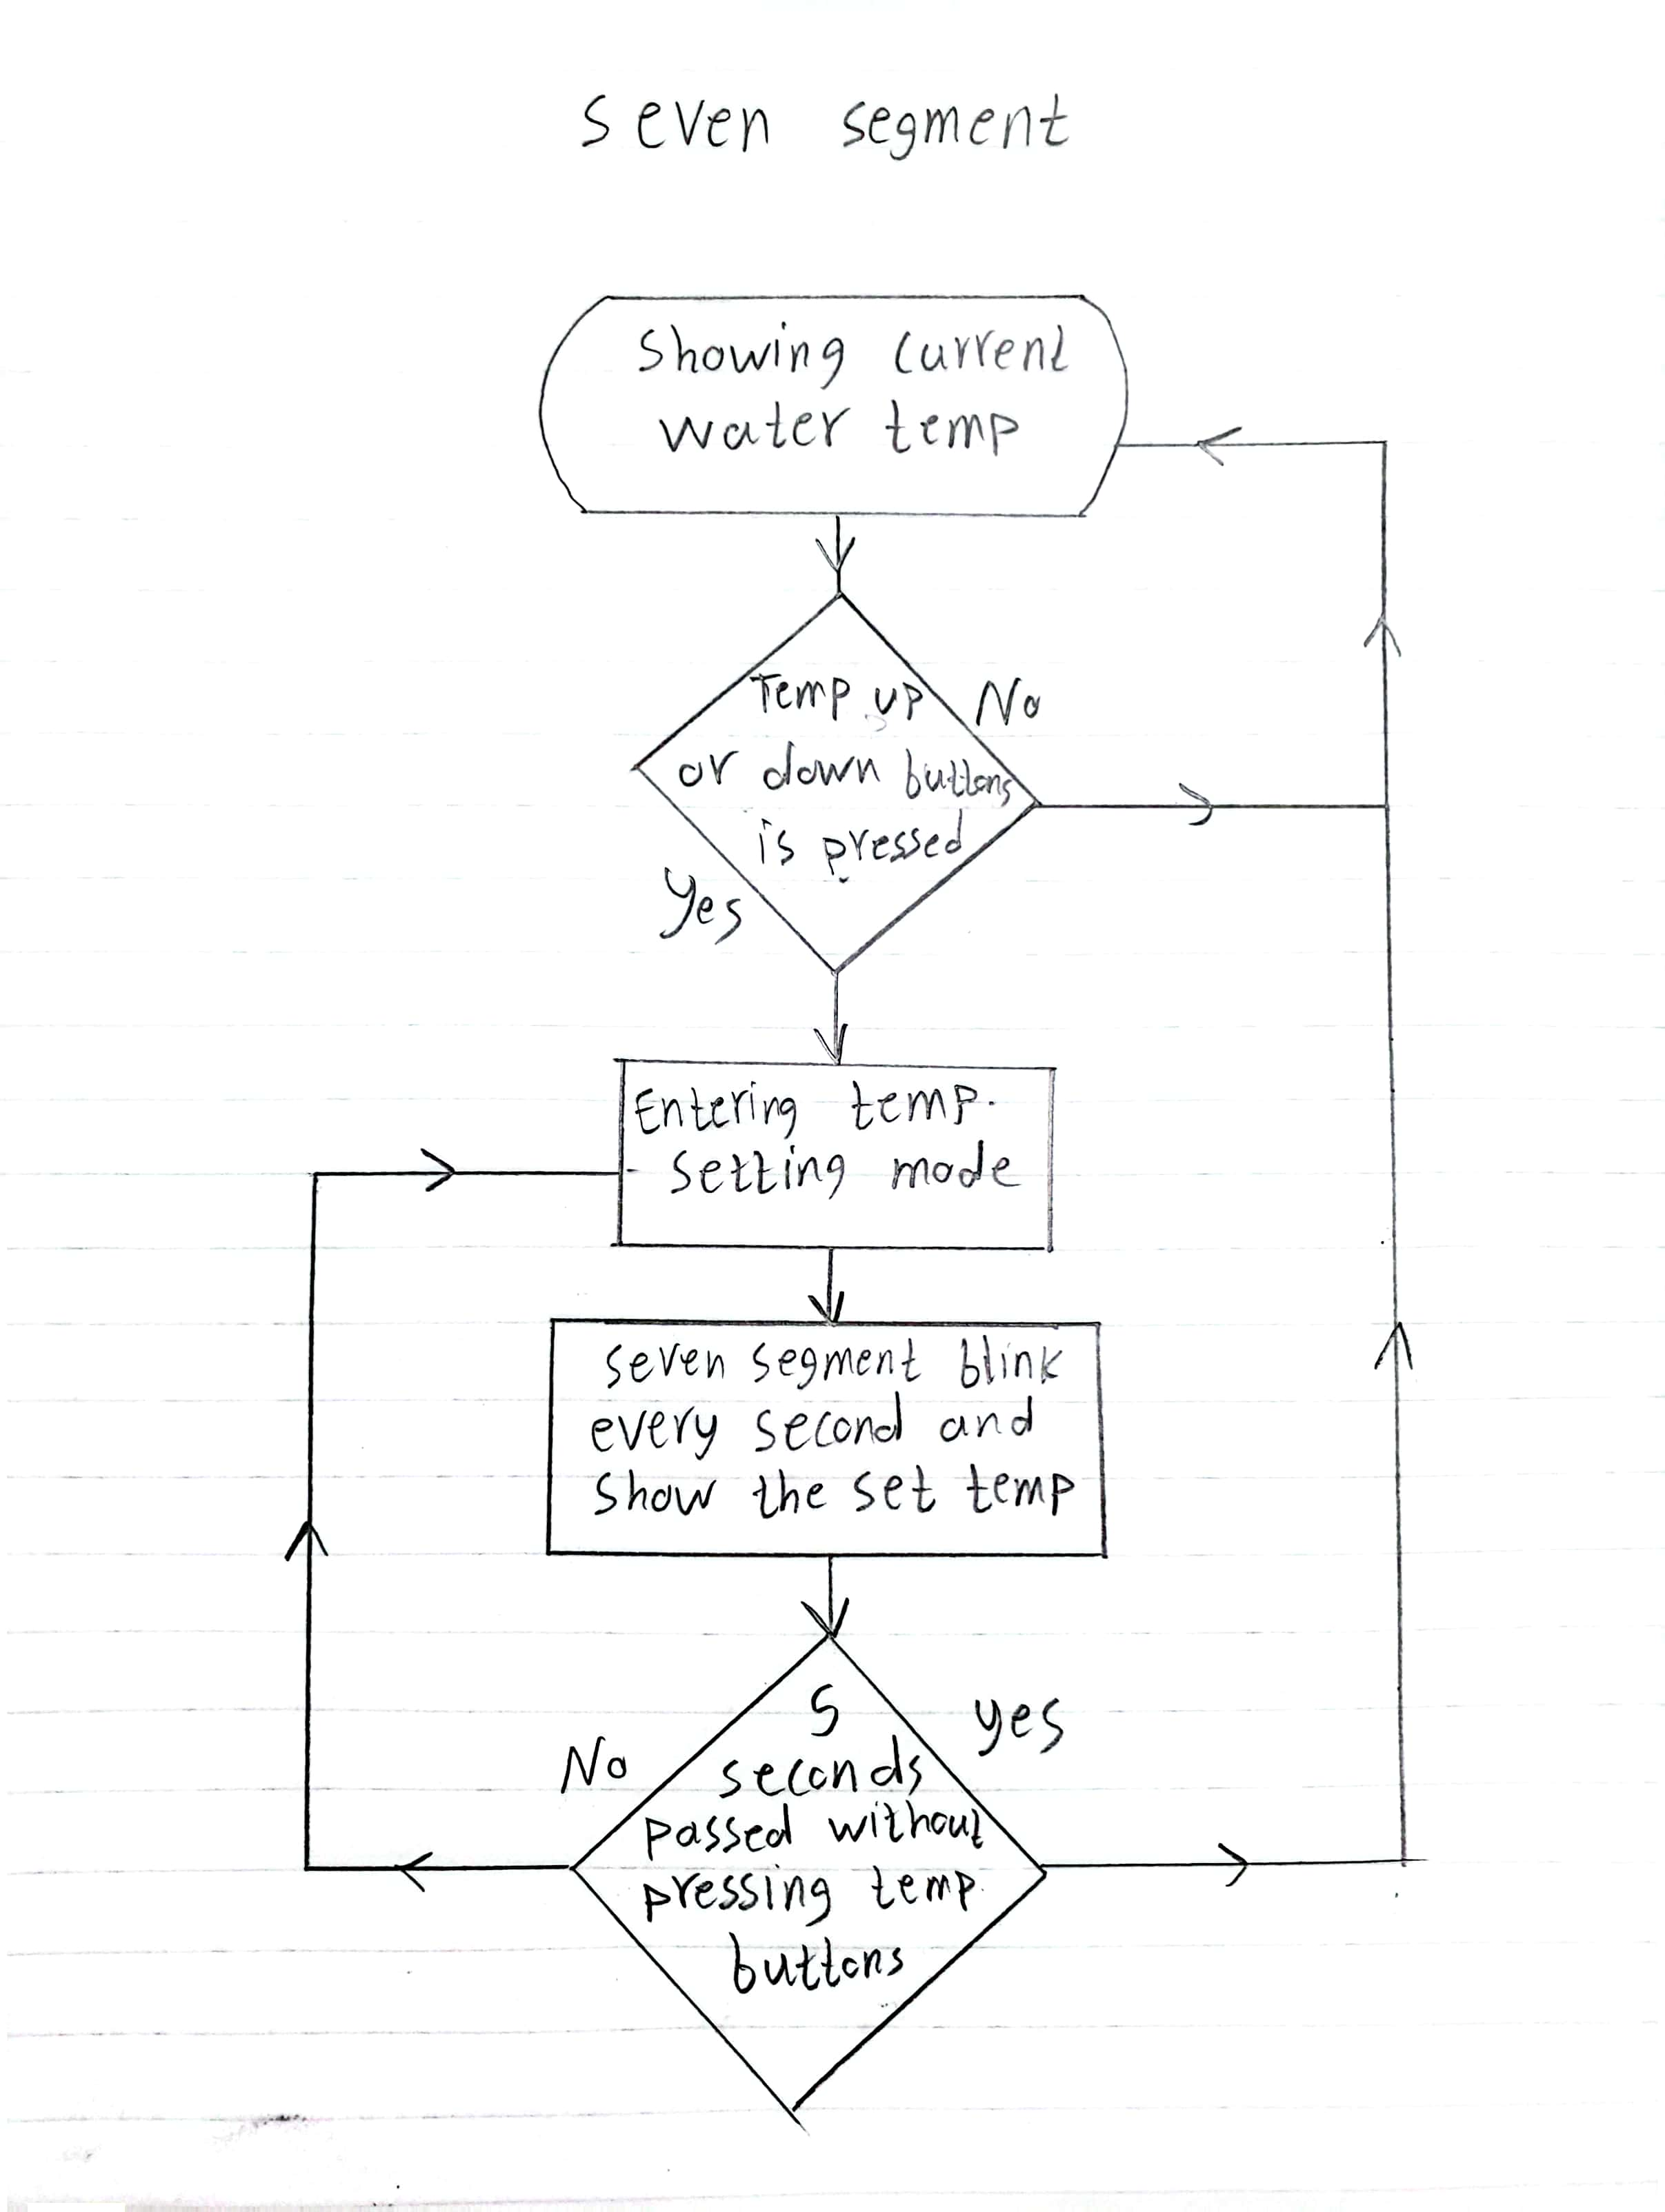 seven segment
Showing current
water temp
Temp up
No
or down buttons
is pressed
Yes
Entering temp.
- setting mode
seven segment blink
every second and
show the set temp
5
yes
No
seconds
passed without
pressing temp.
buttons